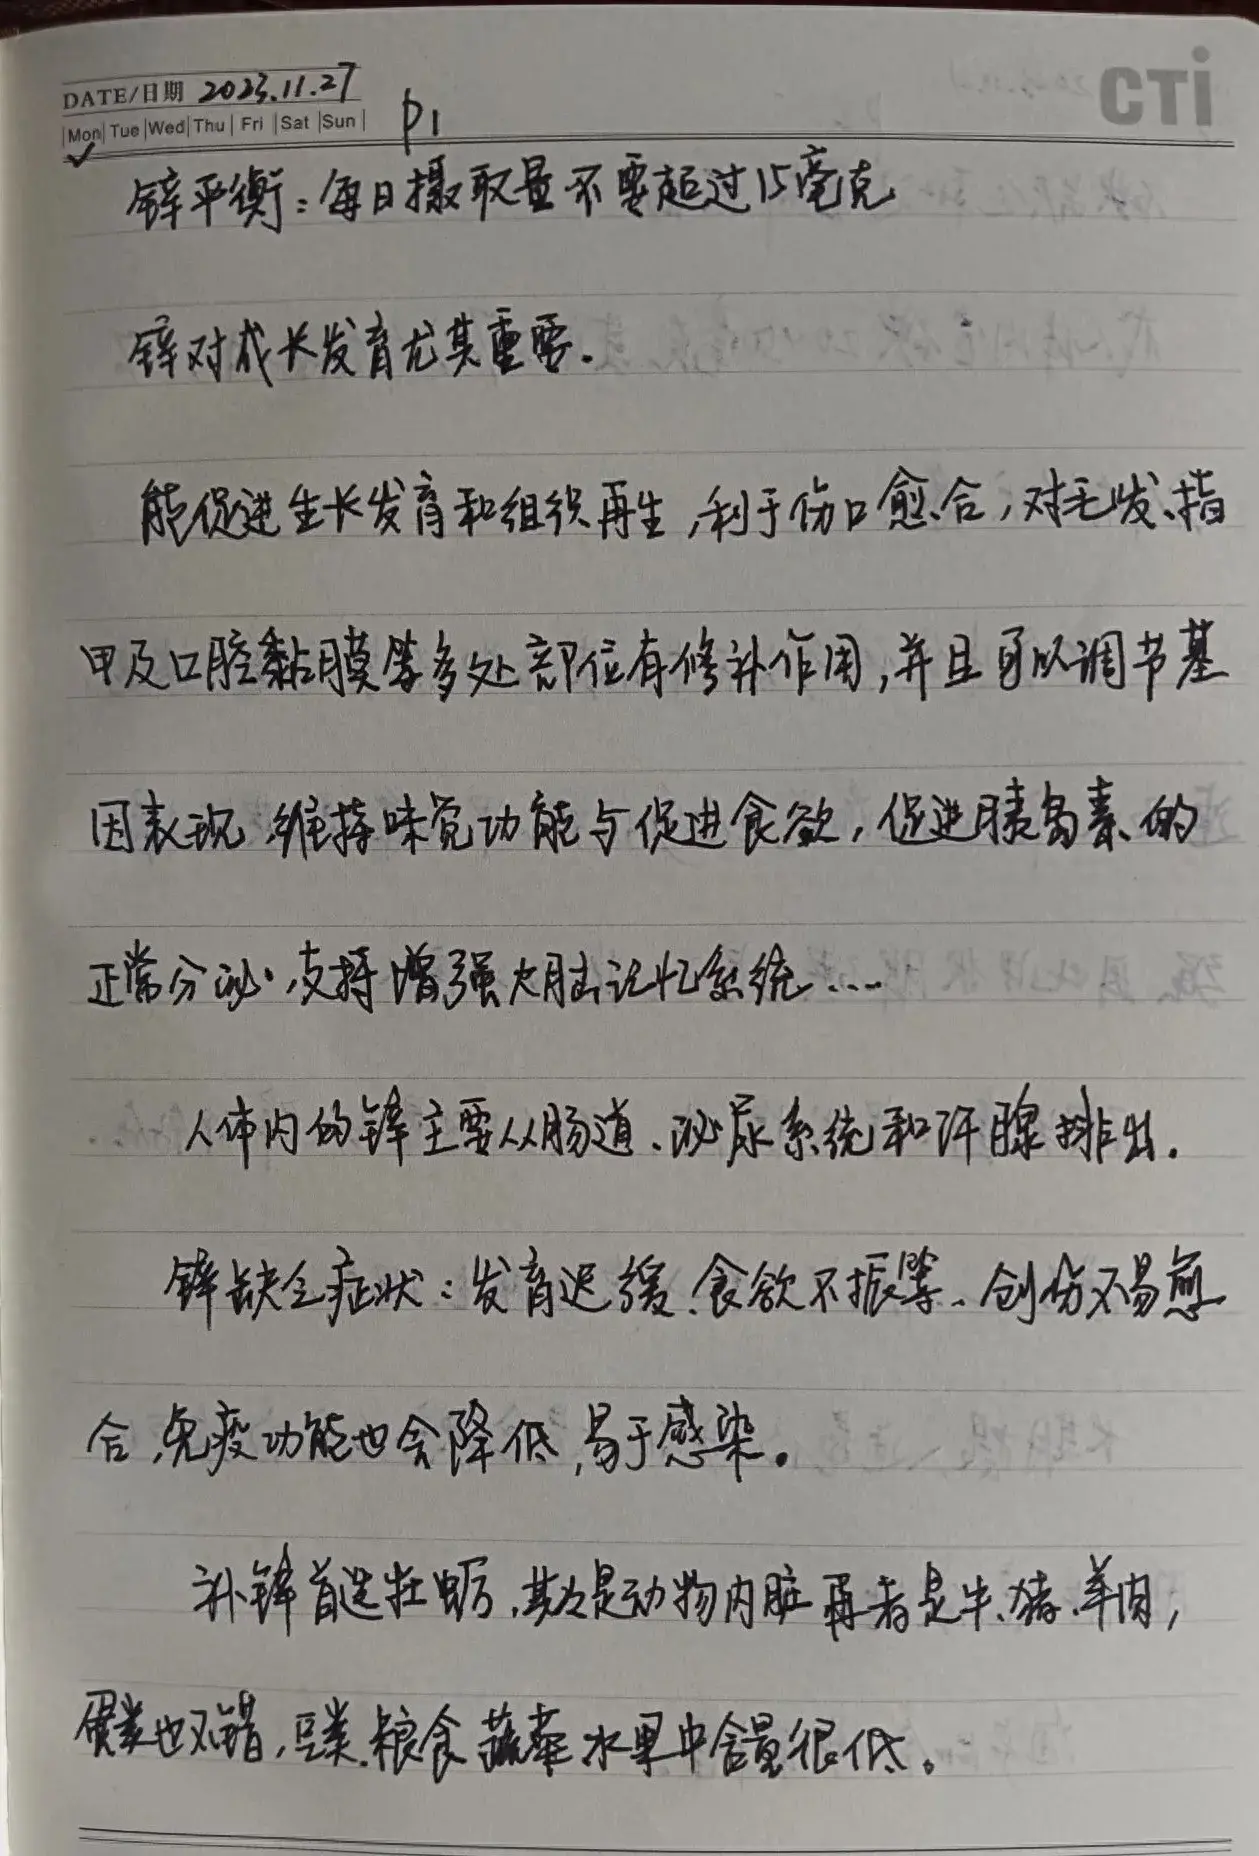 CTi
DATE/日期 2023.11.27
Mon Tue Wed Thu Fri Sat Sun P1
锌平衡：每日摄取量不要超过15毫克
锌对成长发育尤其重要.
能促进生长发育和组织再生,利于伤口愈合,对毛发、指
甲及口腔黏膜等多处部位有修补作用,并且可以调节基
因表现、维持味觉功能与促进食欲,促进胰岛素的
正常分泌、支持增强大脑记忆系统....
人体内的锌主要从肠道、泌尿系统和汗腺排出.
锌缺乏症状：发育迟缓、食欲不振等、创伤不易愈
合,免疫功能也会降低,易于感染。
补锌首选牡蛎,其次是动物内脏再者是牛、猪、羊肉,
蛋类也不错,豆类、粮食蔬菜水果中含量很低。